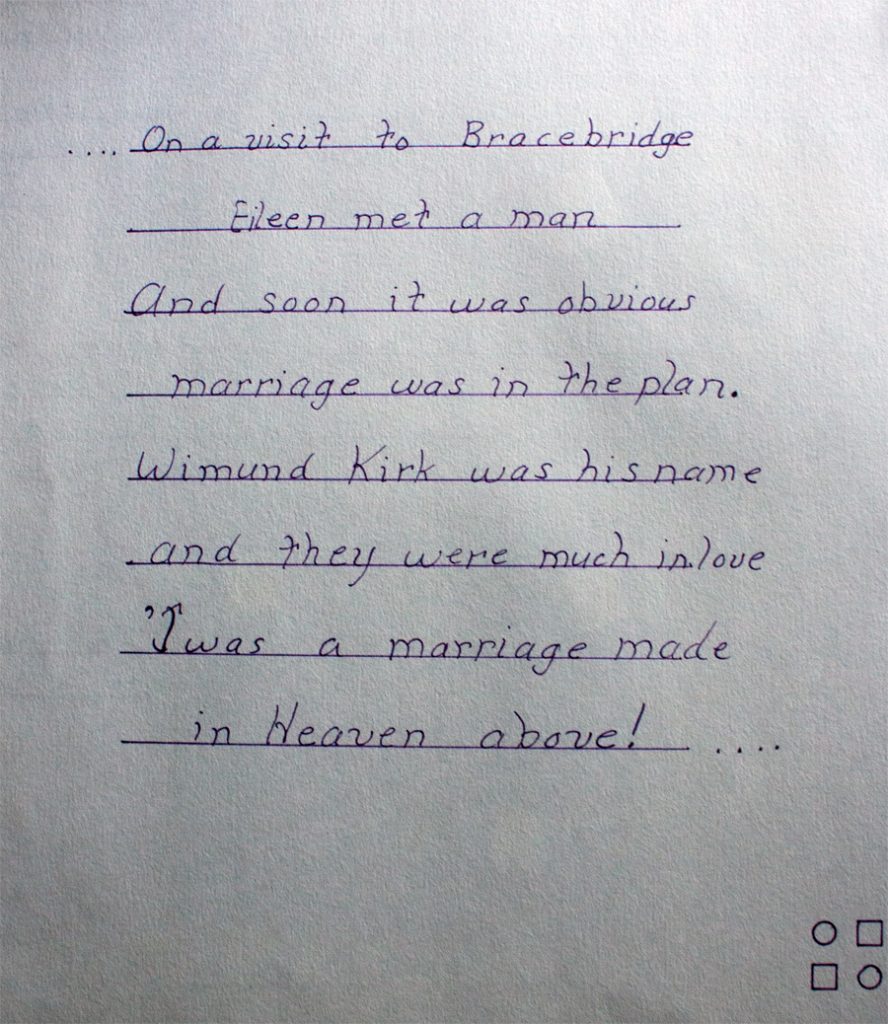 .... On a visit to Bracebridge
Eileen met a man
And soon it was obvious
marriage was in the plan.
Wimund Kirk was his name
and they were much in love
'Twas a marriage made
in Heaven above! ....